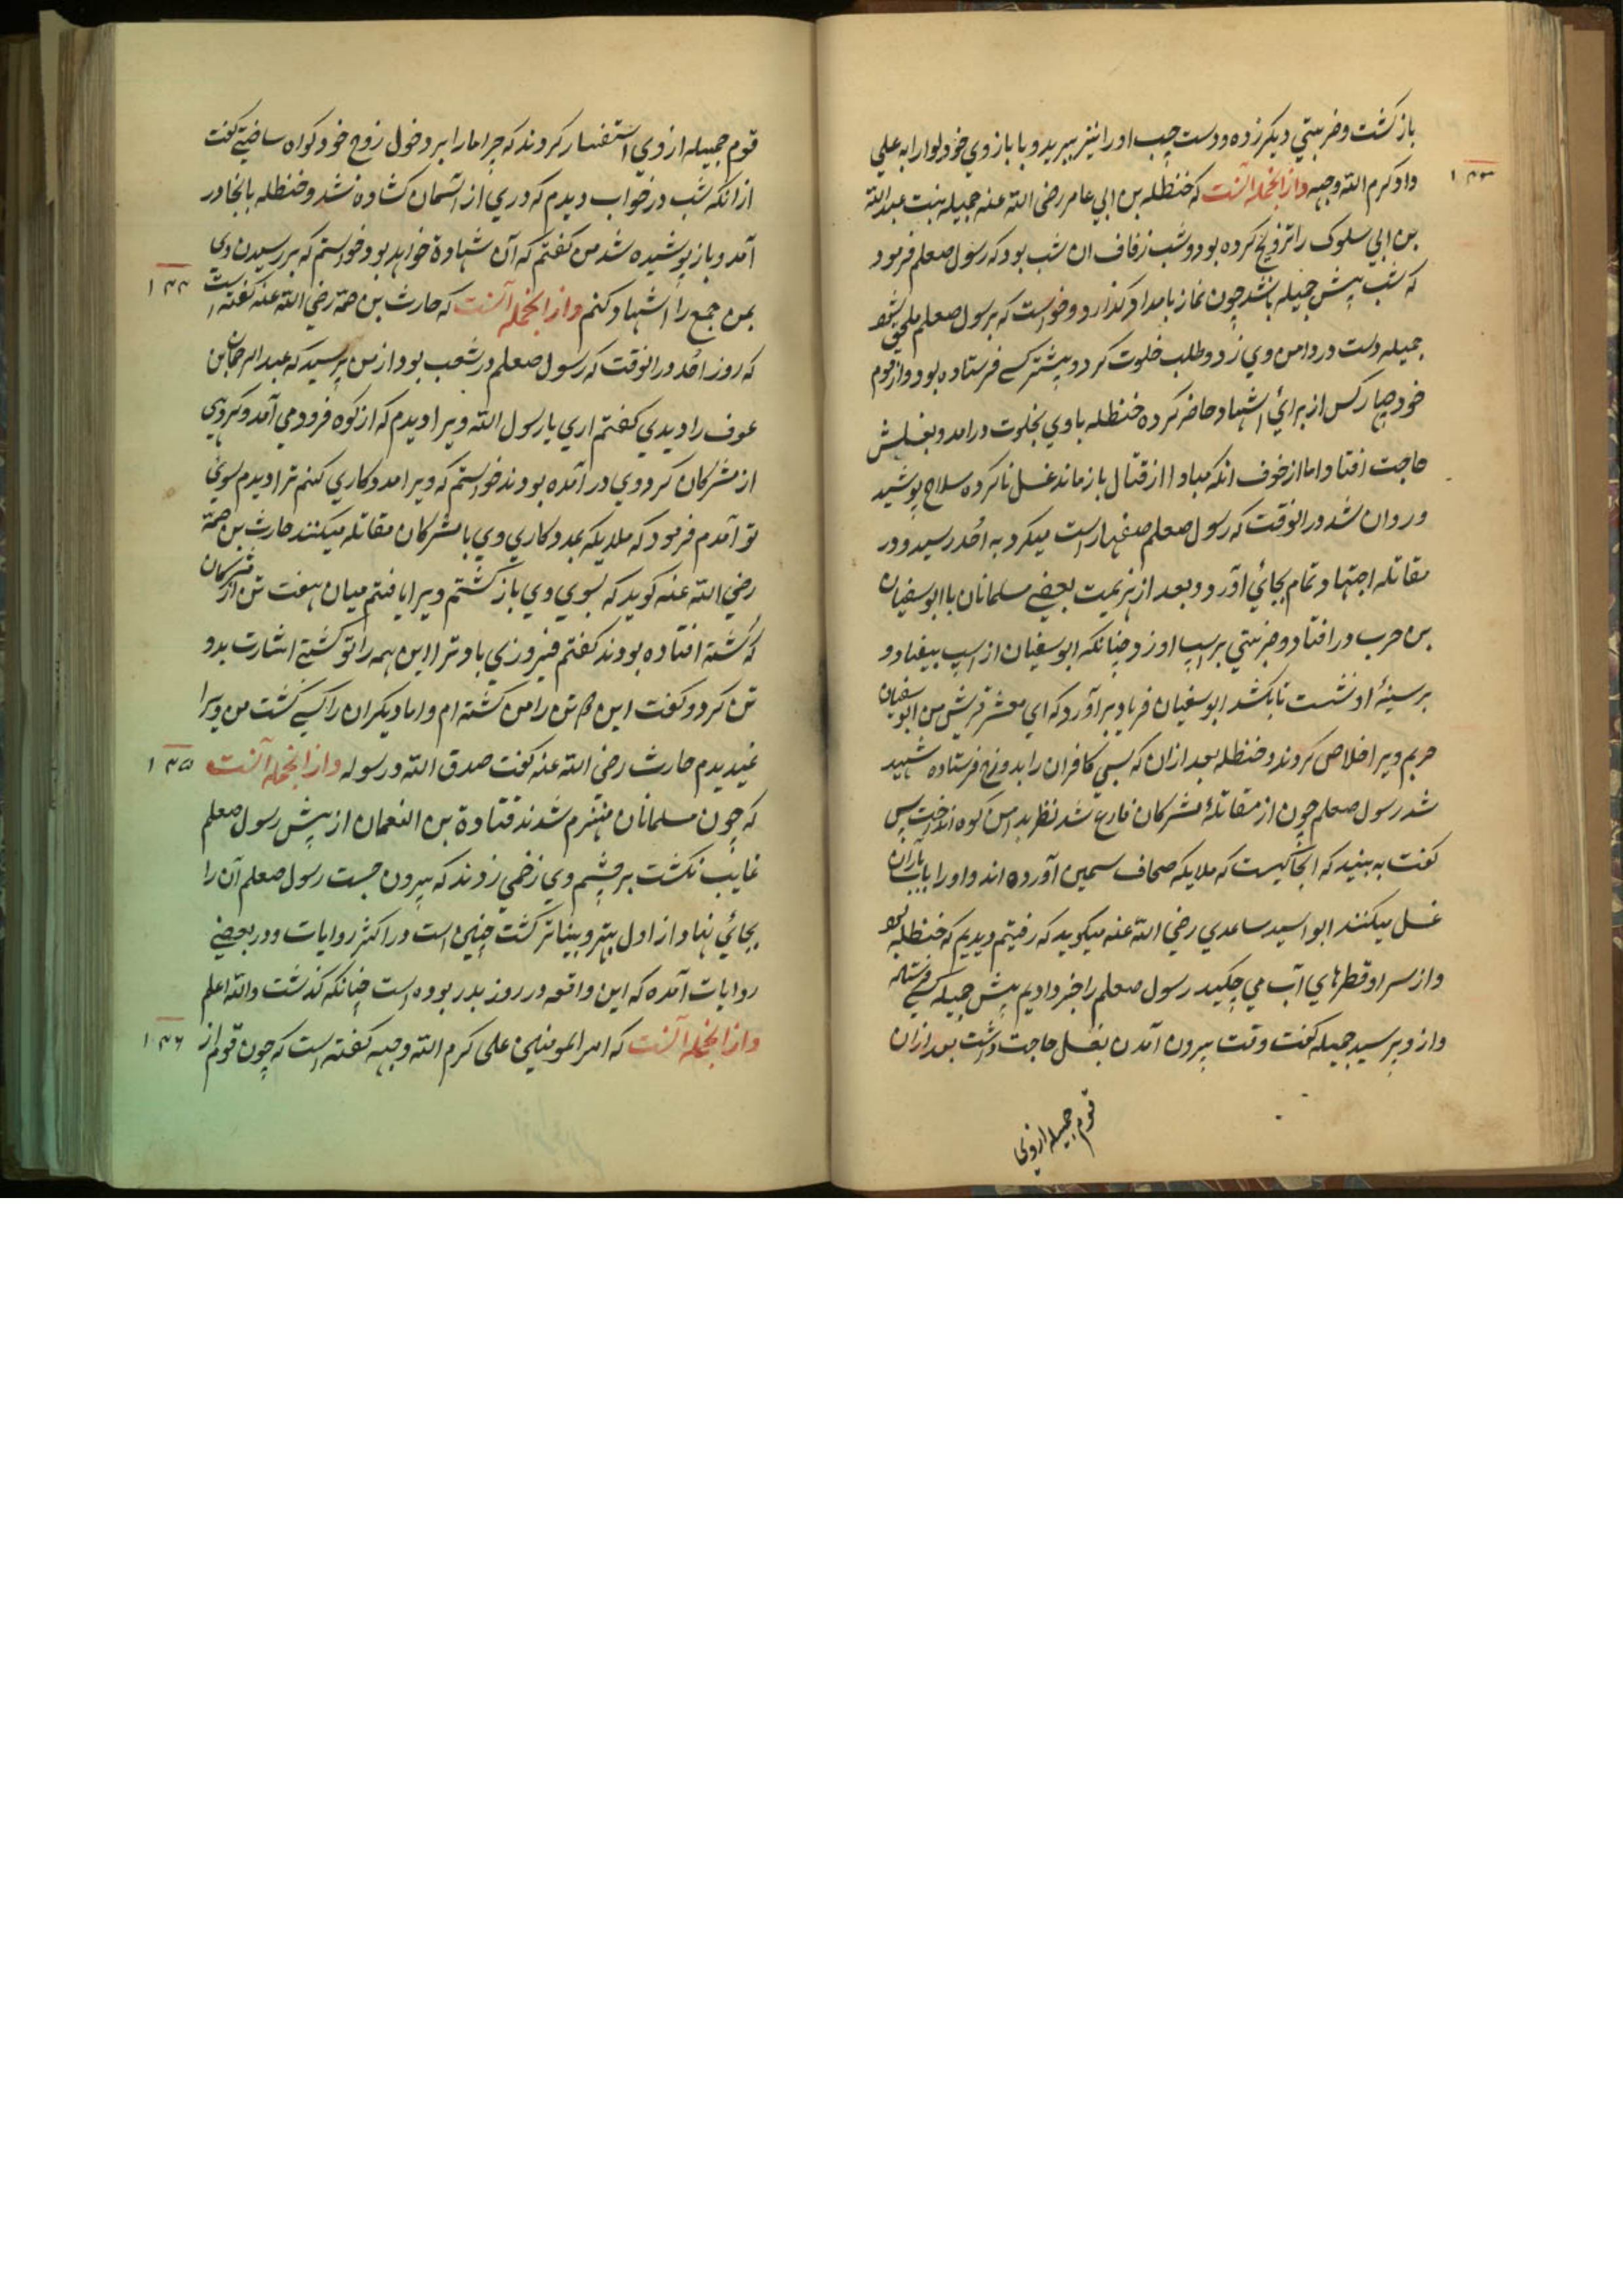 باز گشت و ضربتي ديكر زده و دست چپ او را نيز ببريد و با بازوي خود لوا را به علي
داد كرم الله وجهه و از انجمله آنست كه حنظله بن ابي عامر رضي الله عنه جميله بنت عبد الله
١٤٣
بن ابي سلوك را تزويج كرده بود و شب زفاف ان شب بود كه رسول صعلم فرمود
كه شب پيش جميله باشد چون نماز بامداد كذارد و خواست كه برسول صعلم ملحق شود
جميله دست در دامن وي زد و طلب خلوت كرد و پيشتر كسے فرستاده بود و از قوم
خود چهار كس از براي اشهاد حاضر كرده حنظله با وي بخلوت در امد و بغسلش
حاجت افتاد اما از خوف انكه مبادا از قتال باز ماند غسل ناكرده سلاح پوشيد
و روان شد در انوقت كه رسول صعلم صفها راست ميكرد به اُحد رسيد و در
مقاتله اجتهاد تمام بجاي آورد و بعد از هزيمت بعضے مسلمانان با ابو سفيان
بن حرب در افتاد و ضربتي بر اسپ او زد چنانكه ابو سفيان از اسپ بيفتاد و
بر سينهٔ او نشست تا بكشد ابو سفيان فرياد بر آورد كه اي معشر قريش من ابو سفيان
حربم ويرا خلاص كردند و حنظله بعد ازان كه بسي كافران را بدوزخ فرستاده شهيد
شد رسول صعلم چون از مقاتلهٔ مشركان فارغ شد نظر بدامن كوه انداخت پس
كفت به بينيد كه انجا كيست كه ملايكه صحاف سيمين آورده اند و او را باب باران
غسل ميكنند ابو اسيد ساعدي رضي الله عنه ميكويد كه رفتيم ديديم كه حنظله بود
و از سر او قطرهاي آب مي چكيد رسول صعلم را خبر داديم پيش جميله كسے فرستاد
و از و پرسيد جميله كفت وقت بيرون آمدن بغسل حاجت داشت بعد ازان
قوم جميله از وى
قوم جميله از وي استفسار كردند كه چرا ما را بر دخول زوج خود كواه ساختے كفت
ازانكه شب در خواب ديدم كه دري از آسمان كشاده شد و حنظله بانجا در
آمد و باز پوشيده شد من كفتم كه آن شهادة خواهد بود خواستم كه بر رسيدن وى
بمن جمع را اشهاد كنم و از انجمله آنست كه حارث بن صمّه رضي الله عنه كفته است
١٤٤
كه روز اُحد در انوقت كه رسول صعلم در شعب بود از من پرسيد كه عبد الرحمان بن
عوف را ديدي كفتم اري يا رسول الله ويرا ديدم كه از كوه فرود مي آمد و كروهي
از مشركان كرد وي در آمده بودند خواستم كه ويرا مددكاري كنم ترا ديدم سوي
تو آمدم فرمود كه ملايكه بمددكاري وي با مشركان مقاتله ميكنند حارث بن صمّه
رضي الله عنه كويد كه بسوي وي باز كشتم ويرا يافتم ميان هفت تن از مشركان
كه كشته افتاده بودند كفتم فيروزي باد ترا اين همه را تو كشتے اشارت بدو
تن كرد و كفت اين ٢ تن را من كشته ام و اما ديكران را كسے كشت من ويرا
نديدم حارث رضي الله عنه كفت صدق الله و رسوله و از انجمله آنست
١٤٥
كه چون مسلمانان منهزم شدند قتادة بن النعمان از پيش رسول صعلم
غايب نكشت بر چشم وي زخمي زدند كه بيرون جست رسول صعلم آن را
بجاي نهاد از اول بهتر و بيناتر كشت چنين است در اكثر روايات و در بعضے
روايات آمده كه اين واقعه در روز بدر بوده است چنانكه كذشت والله اعلم
و از انجمله آنست كه امير المومنين على كرم الله وجهه كفته است كه چون قوم از
١٤٦